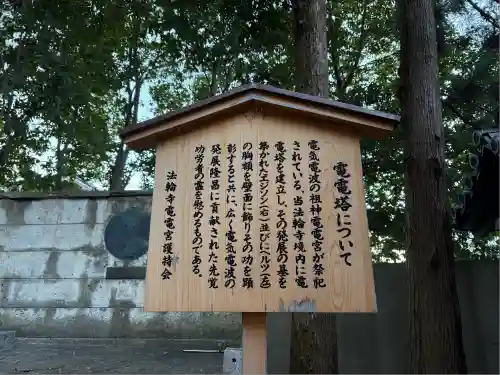 電電塔について
電気電波の祖神電電宮が祭祀
されている、当法輪寺境内に
電電塔を建立し、その発展の基を
築かれたエジソン(右)並びにヘルツ(左)
の胸額を壁面に飾りその功を顕
彰すると共に、広く電気電波の
発展隆昌に貢献された先覚
功労者の霊を慰めるものである。
法輪寺電電宮護持会